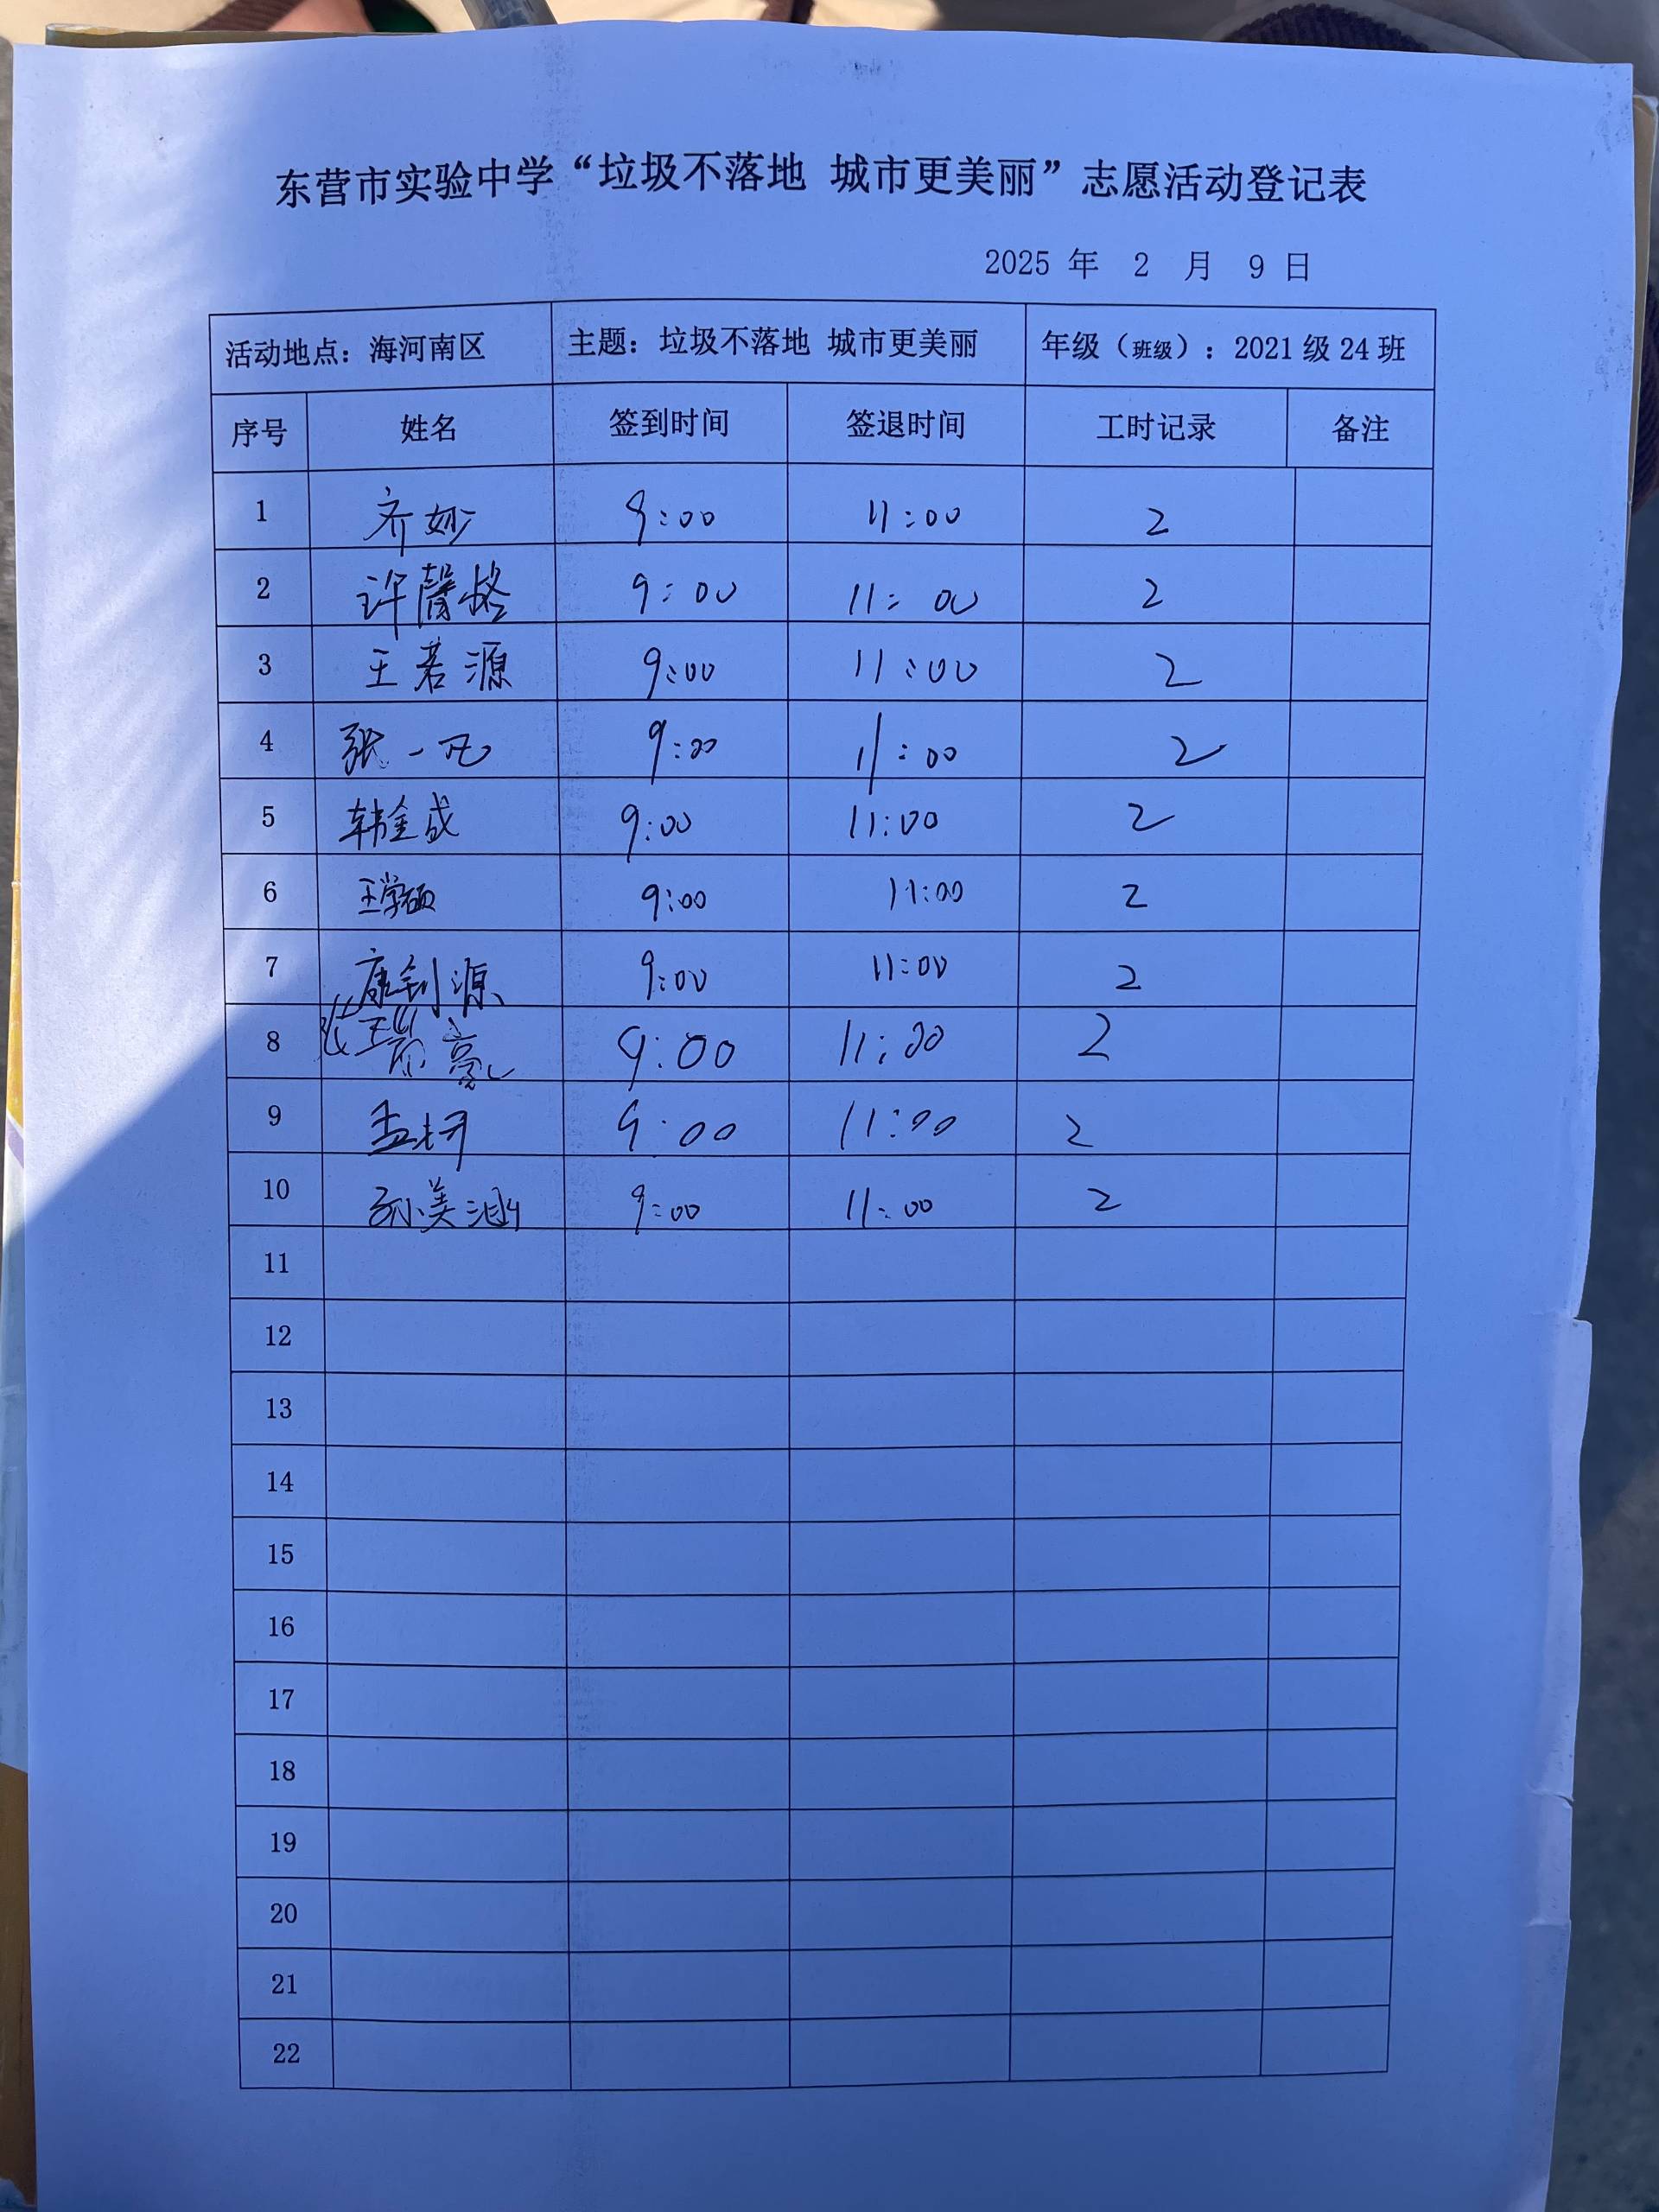 东营市实验中学“垃圾不落地 城市更美丽”志愿活动登记表
2025 年 2 月 9 日
活动地点：海河南区 主题：垃圾不落地 城市更美丽 年级（班级）：2021 级 24 班
序号 姓名 签到时间 签退时间 工时记录 备注
1 齐妙 9:00 11:00 2
2 许馨格 9:00 11:00 2
3 王若源 9:00 11:00 2
4 张一凡 9:00 11:00 2
5 韩金成 9:00 11:00 2
6 王学硕 9:00 11:00 2
7 康钊源 9:00 11:00 2
8 张瑞豪 9:00 11:00 2
9 孟 9:00 11:00 2
10 孙美涵 9:00 11:00 2
11
12
13
14
15
16
17
18
19
20
21
22